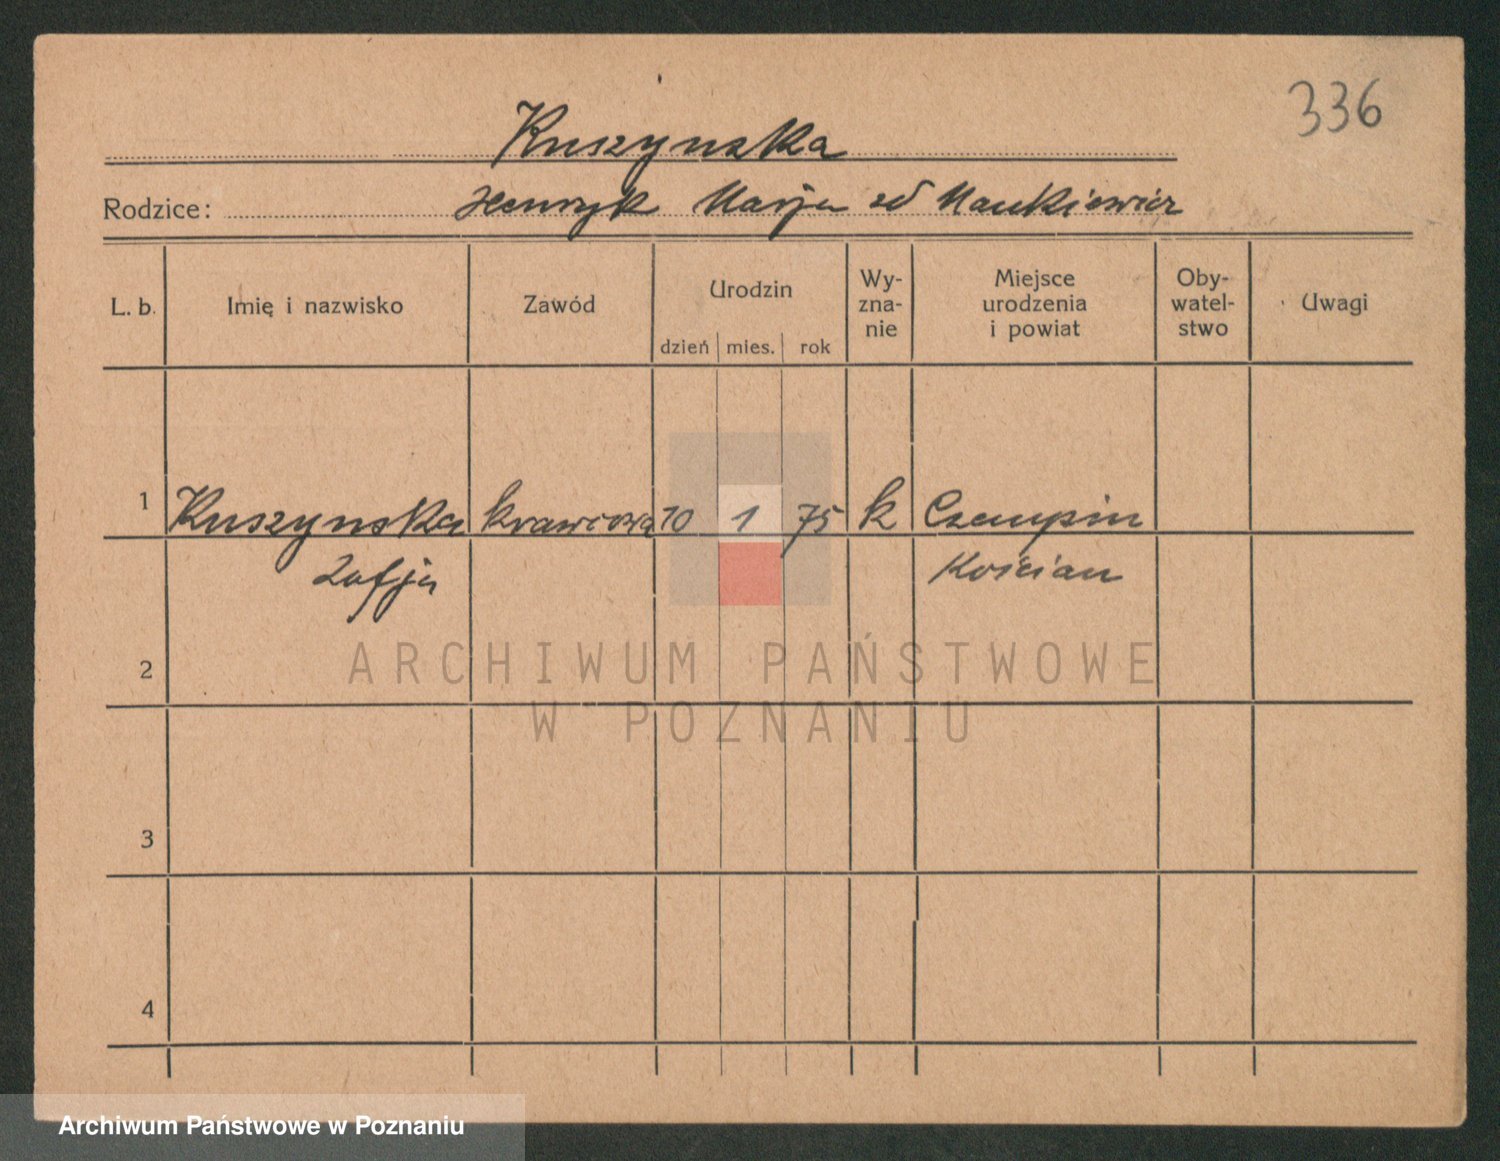 336
Kuszynska
Rodzice: Henryk Marja zd Mankiewicz
L. b. Imię i nazwisko Zawód Urodzin dzień mies. rok Wy-zna-nie Miejsce urodzenia i powiat Oby-watel-stwo Uwagi
1 Kuszynska krawcowa 10 1 75 k Czempin
Zofja Kościan
2
ARCHIWUM PAŃSTWOWE
W POZNANIU
3
4
Archiwum Państwowe w Poznaniu